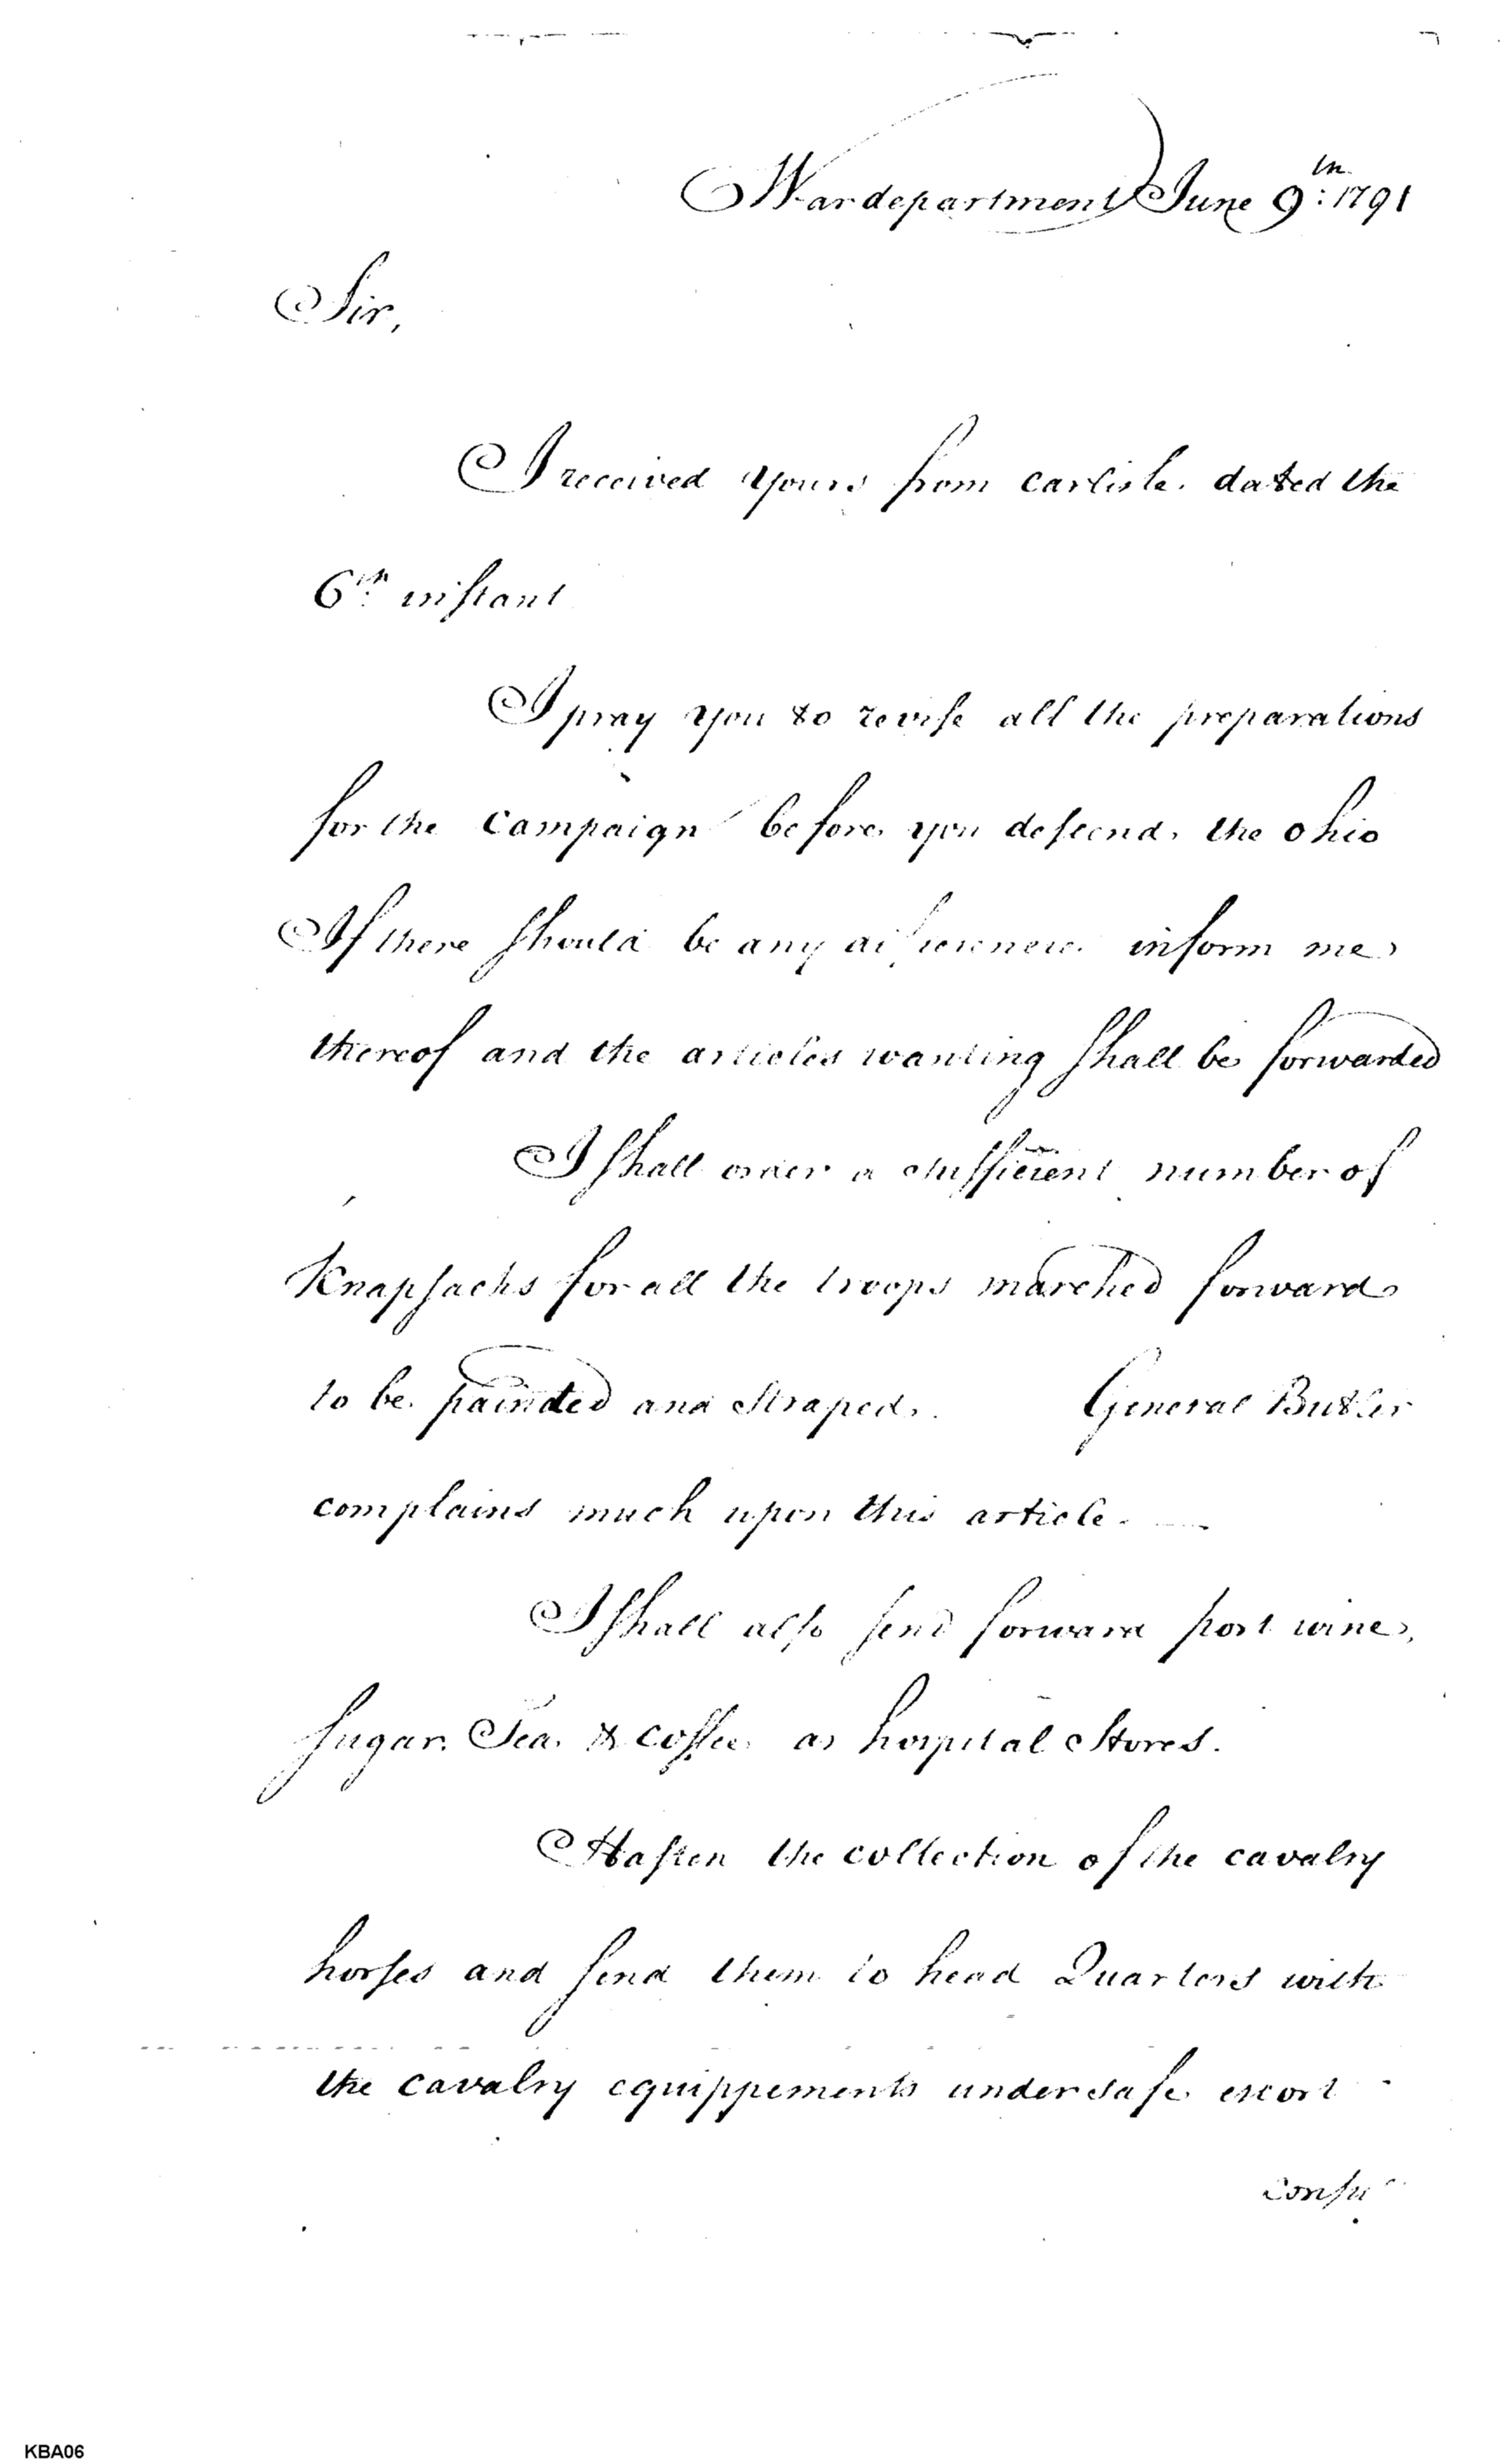 War department June 9th: 1791
Sir,
I received yours from Carlisle dated the
6th: instant
I pray you to revise all the preparations
for the campaign before you descend the ohio
If there should be any inform me
thereof and the articles wanting shall be forwarded
I shall order a sufficient number of
Knapsacks for all the troops marched forward
to be painted and straped. General Butler
complains much upon this article. —
I shall also send forward port wine,
sugar, Tea, & coffee as hospital stores.
Hasten the collection of the cavalry
horses and send them to head Quarters with
the cavalry equippements under safe escort
KBA06